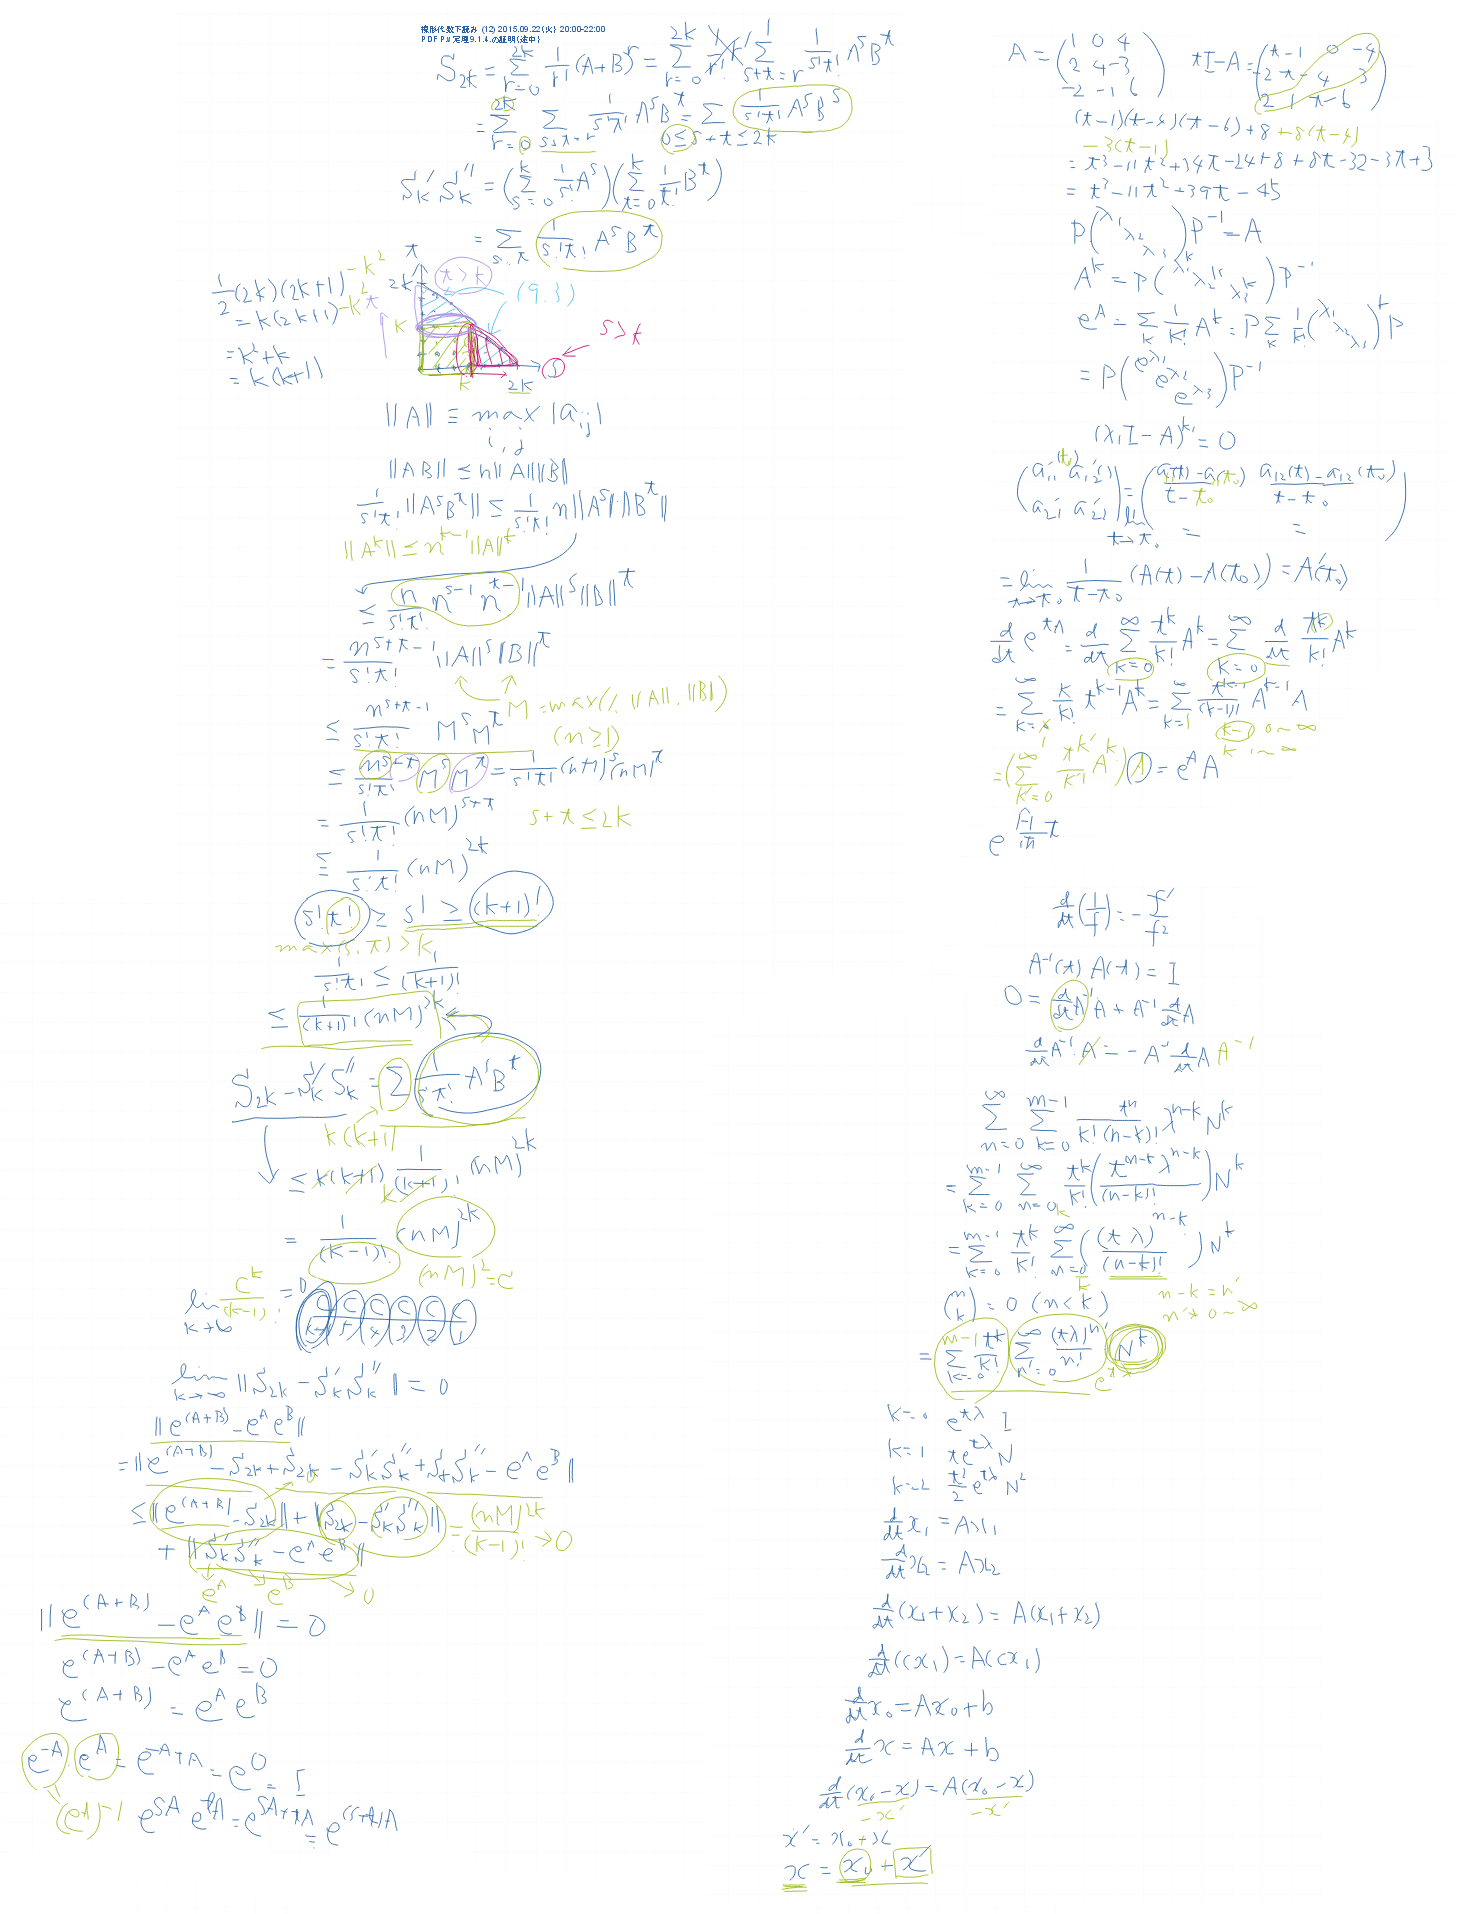 線形代数下読み (12) 2015.09.22(火) 20:00-22:00
PDF P.// 定理9.1.4.の証明(途中)
S_{2k} = \sum_{r=0}^{2k} \frac{1}{r!}(A+B)^r = \sum_{r=0}^{2k} \frac{1}{r!} r! \sum_{s+t=r} \frac{1}{s!t!} A^s B^t
= \sum_{r=0}^{2k} \sum_{s+t=r} \frac{1}{s!t!} A^s B^t = \sum_{0≤s+t≤2k} \frac{1}{s!t!} A^s B^s
S_k' S_k'' = (\sum_{s=0}^{k} \frac{1}{s!} A^s)(\sum_{t=0}^{k} \frac{1}{t!} B^t)
= \sum_{s,t} \frac{1}{s!t!} A^s B^t
\frac{1}{2}(2k)(2k+1) -k^2
= k(2k+1) -k^2
= k^2+k
= k(k+1)
t
2k
t>k
(9.3)
t
k
s>k
k
2k
s
||A|| ≡ max_{i,j} |a_{ij}|
||AB|| ≤ n||A||||B||
\frac{1}{s!t!} ||A^s B^t|| ≤ \frac{1}{s!t!} n||A^s||||B^t||
||A^k|| ≤ n^{k-1}||A||^k
≤ \frac{n}{s!t!} n^{s-1} n^{t-1} ||A||^s ||B||^t
= \frac{n^{s+t-1}}{s!t!} ||A||^s ||B||^t
M = max(1, ||A||, ||B||)
≤ \frac{n^{s+t-1}}{s!t!} M^s M^t
(n≥1)
≤ \frac{n^{s+t}}{s!t!} M^s M^t = \frac{1}{s!t!} (nM)^s (nM)^t
= \frac{1}{s!t!} (nM)^{s+t}
s+t ≤ 2k
≤ \frac{1}{s!t!} (nM)^{2k}
s!t! ≥ s! ≥ (k+1)!
max(s,t) > k
\frac{1}{s!t!} ≤ \frac{1}{(k+1)!}
≤ \frac{1}{(k+1)!} (nM)^{2k}
S_{2k} - S_k' S_k'' = \sum \frac{1}{s!t!} A^s B^t
k(k+1)
≤ k(k+1) \frac{1}{(k+1)!} (nM)^{2k}
k
= \frac{1}{(k-1)!} (nM)^{2k}
(nM)^2 = C
lim_{k→∞} \frac{C^k}{(k-1)!} = 0
\frac{C}{5} \frac{C}{4} \frac{C}{3} \frac{C}{2} \frac{C}{1}
lim_{k→∞} ||S_{2k} - S_k' S_k''|| = 0
||e^{(A+B)} - e^A e^B||
= ||e^{(A+B)} - S_{2k} + S_{2k} - S_k' S_k'' + S_k' S_k'' - e^A e^B||
0
≤ ||e^{(A+B)} - S_{2k}|| + ||S_{2k} - S_k' S_k''|| = \frac{(nM)^{2k}}{(k-1)!} → 0
+ ||S_k' S_k'' - e^A e^B||
e^A e^B → 0
||e^{(A+B)} - e^A e^B|| = 0
e^{(A+B)} - e^A e^B = 0
e^{(A+B)} = e^A e^B
e^{-A} e^A = e^{-A+A} = e^0 = I
(e^A)^{-1} e^{sA} e^{tA} = e^{sA+tA}
= e^{(s+t)A}
A = ( 1 0 4
2 4 -3
-2 -1 6 )
tI-A = ( t-1 0 -4
-2 t-4 3
2 1 t-6 )
(t-1)(t-4)(t-6)+8 +8(t-4)
-3(t-1)
= t^3-11t^2+34t-24+8+8t-32-3t+3
= t^3-11t^2+39t-45
P( λ_1 λ_2 λ_3 )P^{-1} = A
A^k = P( λ_1^k λ_2^k λ_3^k )P^{-1}
e^A = \sum_k \frac{1}{k!} A^k = P \sum_k \frac{1}{k!} ( λ_1 λ_2 λ_3 )^k P
= P( e^{λ_1} e^{λ_2} e^{λ_3} )P^{-1}
(λ_1 I - A)^{k_1} = 0
( a_{11}'(t_0) a_{12}'
a_{21}' a_{22}' ) = lim_{t→t_0} ( \frac{a_{11}(t)-a_{11}(t_0)}{t-t_0} \frac{a_{12}(t)-a_{12}(t_0)}{t-t_0} )
= lim_{t→t_0} \frac{1}{t-t_0} (A(t)-A(t_0)) = A'(t_0)
\frac{d}{dt} e^{tA} = \frac{d}{dt} \sum_{k=0}^{∞} \frac{t^k}{k!} A^k = \sum_{k=0}^{∞} \frac{d}{dt} \frac{t^k}{k!} A^k
= \sum_{k=1}^{∞} \frac{k}{k!} t^{k-1} A^k = \sum_{k=1}^{∞} \frac{t^{k-1}}{(k-1)!} A^{k-1} A
k-1 0~∞
k 1~∞
= (\sum_{k'=0}^{∞} \frac{t^{k'}}{k'!} A^{k'}) A = e^A A
e^{\frac{H}{iħ}t}
\frac{d}{dt}(\frac{1}{f}) = -\frac{f'}{f^2}
A^{-1}(t) A(t) = I
0 = \frac{d}{dt}A^{-1} A + A^{-1} \frac{d}{dt}A
\frac{d}{dt}A^{-1} A = -A^{-1} \frac{d}{dt}A A^{-1}
\sum_{n=0}^{∞} \sum_{k=0}^{m-1} \frac{t^n}{k!(n-k)!} λ^{n-k} N^k
= \sum_{k=0}^{m-1} \sum_{n=0}^{∞} \frac{t^k}{k!} (\frac{t^{n-k} λ^{n-k}}{(n-k)!}) N^k
k
= \sum_{k=0}^{m-1} \frac{t^k}{k!} \sum_{n=0}^{∞} (\frac{(tλ)^{n-k}}{(n-k)!}) N^k
k
n-k = n'
n' 0~∞
(n k) = 0 (n<k)
= \sum_{k=0}^{m-1} \frac{t^k}{k!} \sum_{n'=0}^{∞} \frac{(tλ)^{n'}}{n'!} N^k
e^{tλ}
k=0 e^{tλ} I
k=1 te^{tλ} N
k=2 \frac{t^2}{2} e^{tλ} N^2
\frac{d}{dt}x_1 = Ax_1
\frac{d}{dt}x_2 = Ax_2
\frac{d}{dt}(x_1+x_2) = A(x_1+x_2)
\frac{d}{dt}(cx_1) = A(cx_1)
\frac{d}{dt}x_0 = Ax_0+b
\frac{d}{dt}x = Ax+b
\frac{d}{dt}(x_0-x) = A(x_0-x)
-x' -x'
x' = x_0+x
x = x_0 + x'